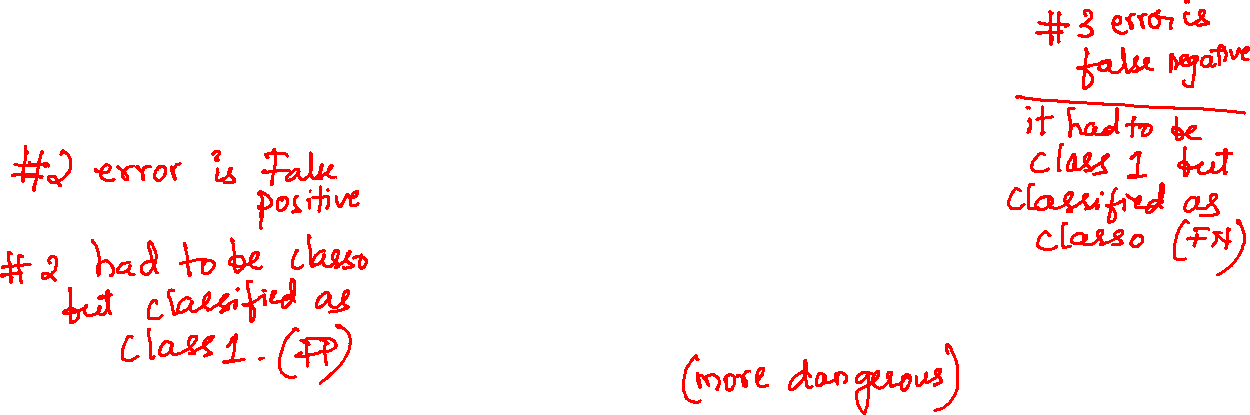 #2 error is False
positive
#2 had to be class0
but classified as
class1. (FP)
#3 error is
false negative
it had to be
class 1 but
classified as
class0 (FN)
(more dangerous)